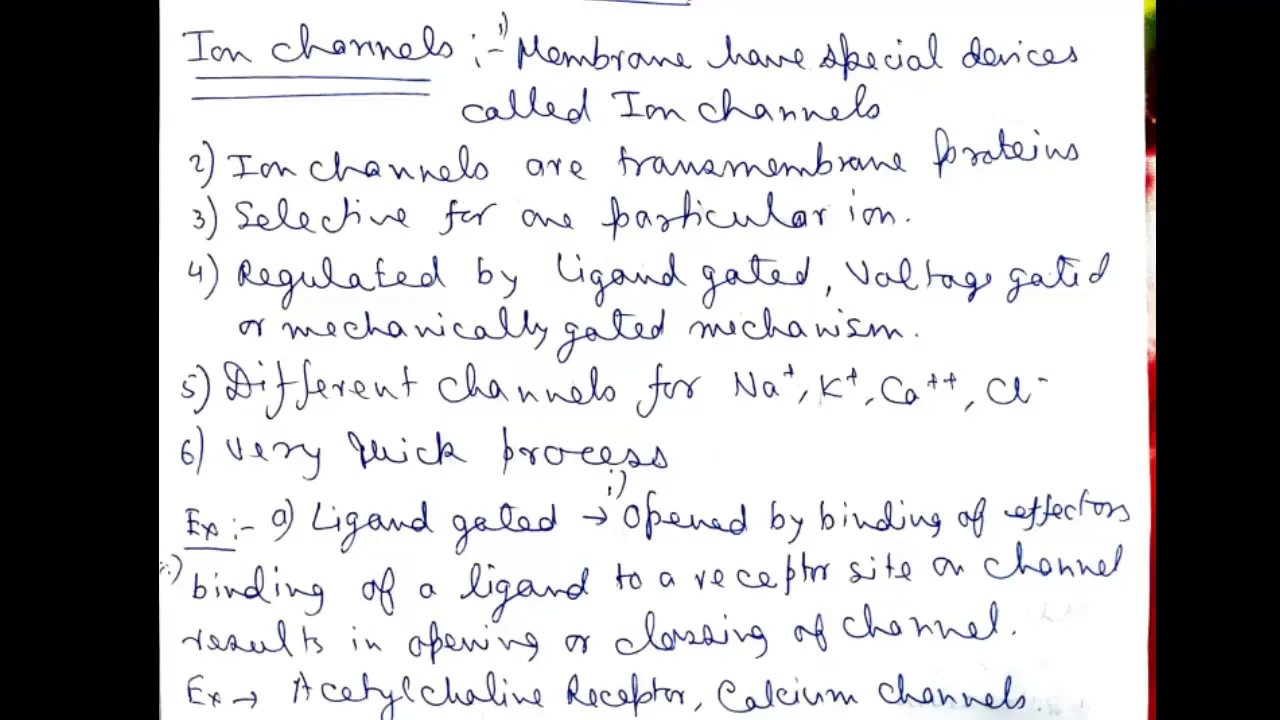 Ion channels :- 1) Membrane have special devices
called Ion channels
2) Ion channels are transmembrane proteins
3) Selective for one particular ion.
4) Regulated by Ligand gated, Voltage gated
or mechanically gated mechanism.
5) Different channels for Na⁺, K⁺, Ca⁺⁺, Cl⁻
6) Very quick process
Ex :- a) Ligand gated → i) Opened by binding of effectors
ii) binding of a ligand to a receptor site on channel
results in opening or clossing of channel.
Ex → Acetylcholine Receptor, Calcium channels.